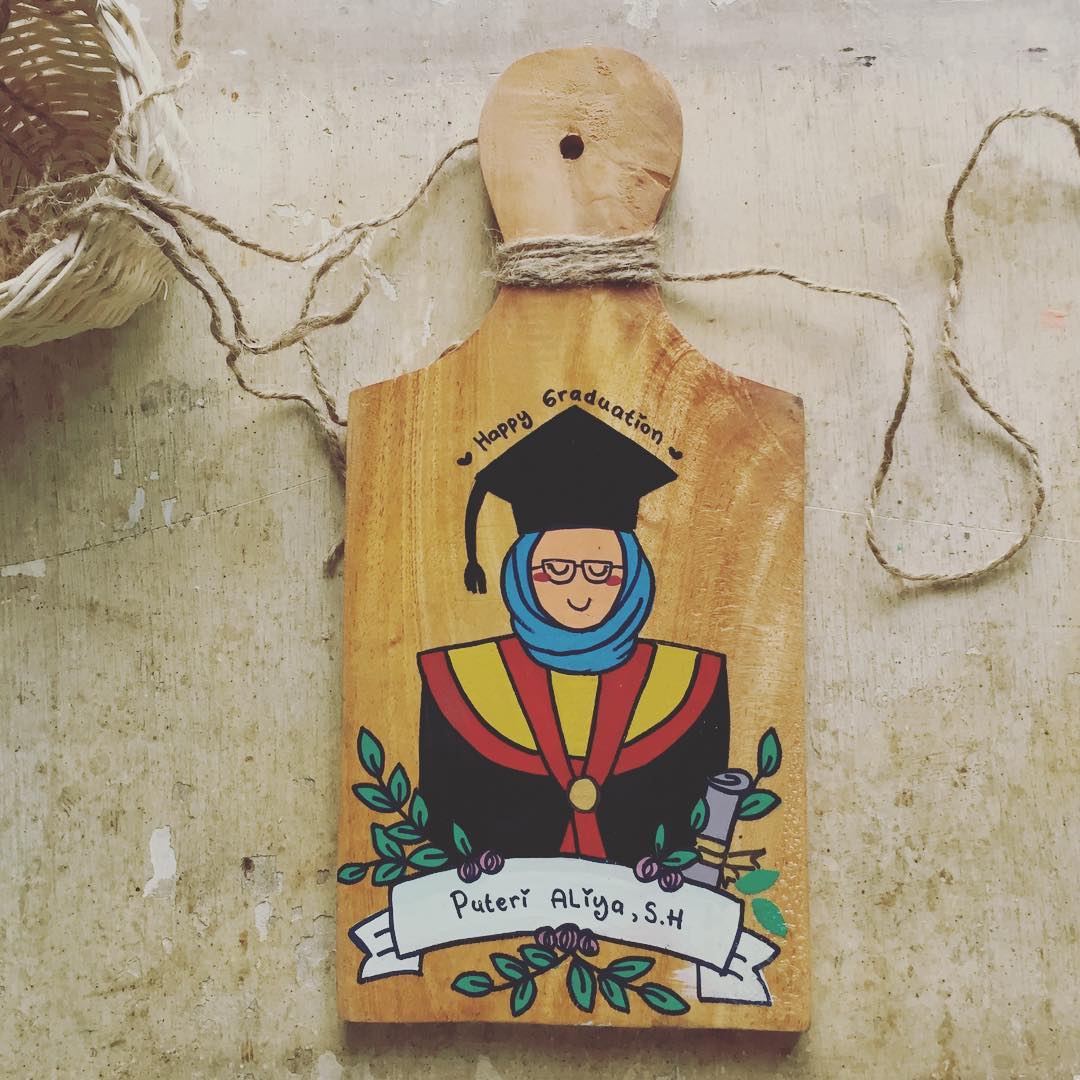 Happy Graduation
Puteri ALiya, S.H